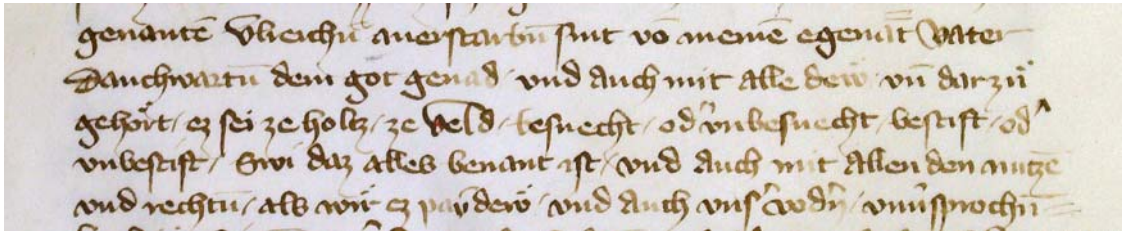 genantē Vlreichn̄ anerstarbn̄ sint vō meinē egenāt Vater
Danchwartn̄ dem got genad · vnd auch mit alle dew · vn̄ dar zů
gehőrt / ez sei ze holtz / ze veld · besuecht / od͛ vnbesuecht / bestift / od͛
vnbestift / Swi daz alles benant ist / vnd auch mit allen den nutzē
vnd rechtn̄ / als wir ez paydew · vnd auch vns͛ vodn͛ · vnu͛sprochn̄